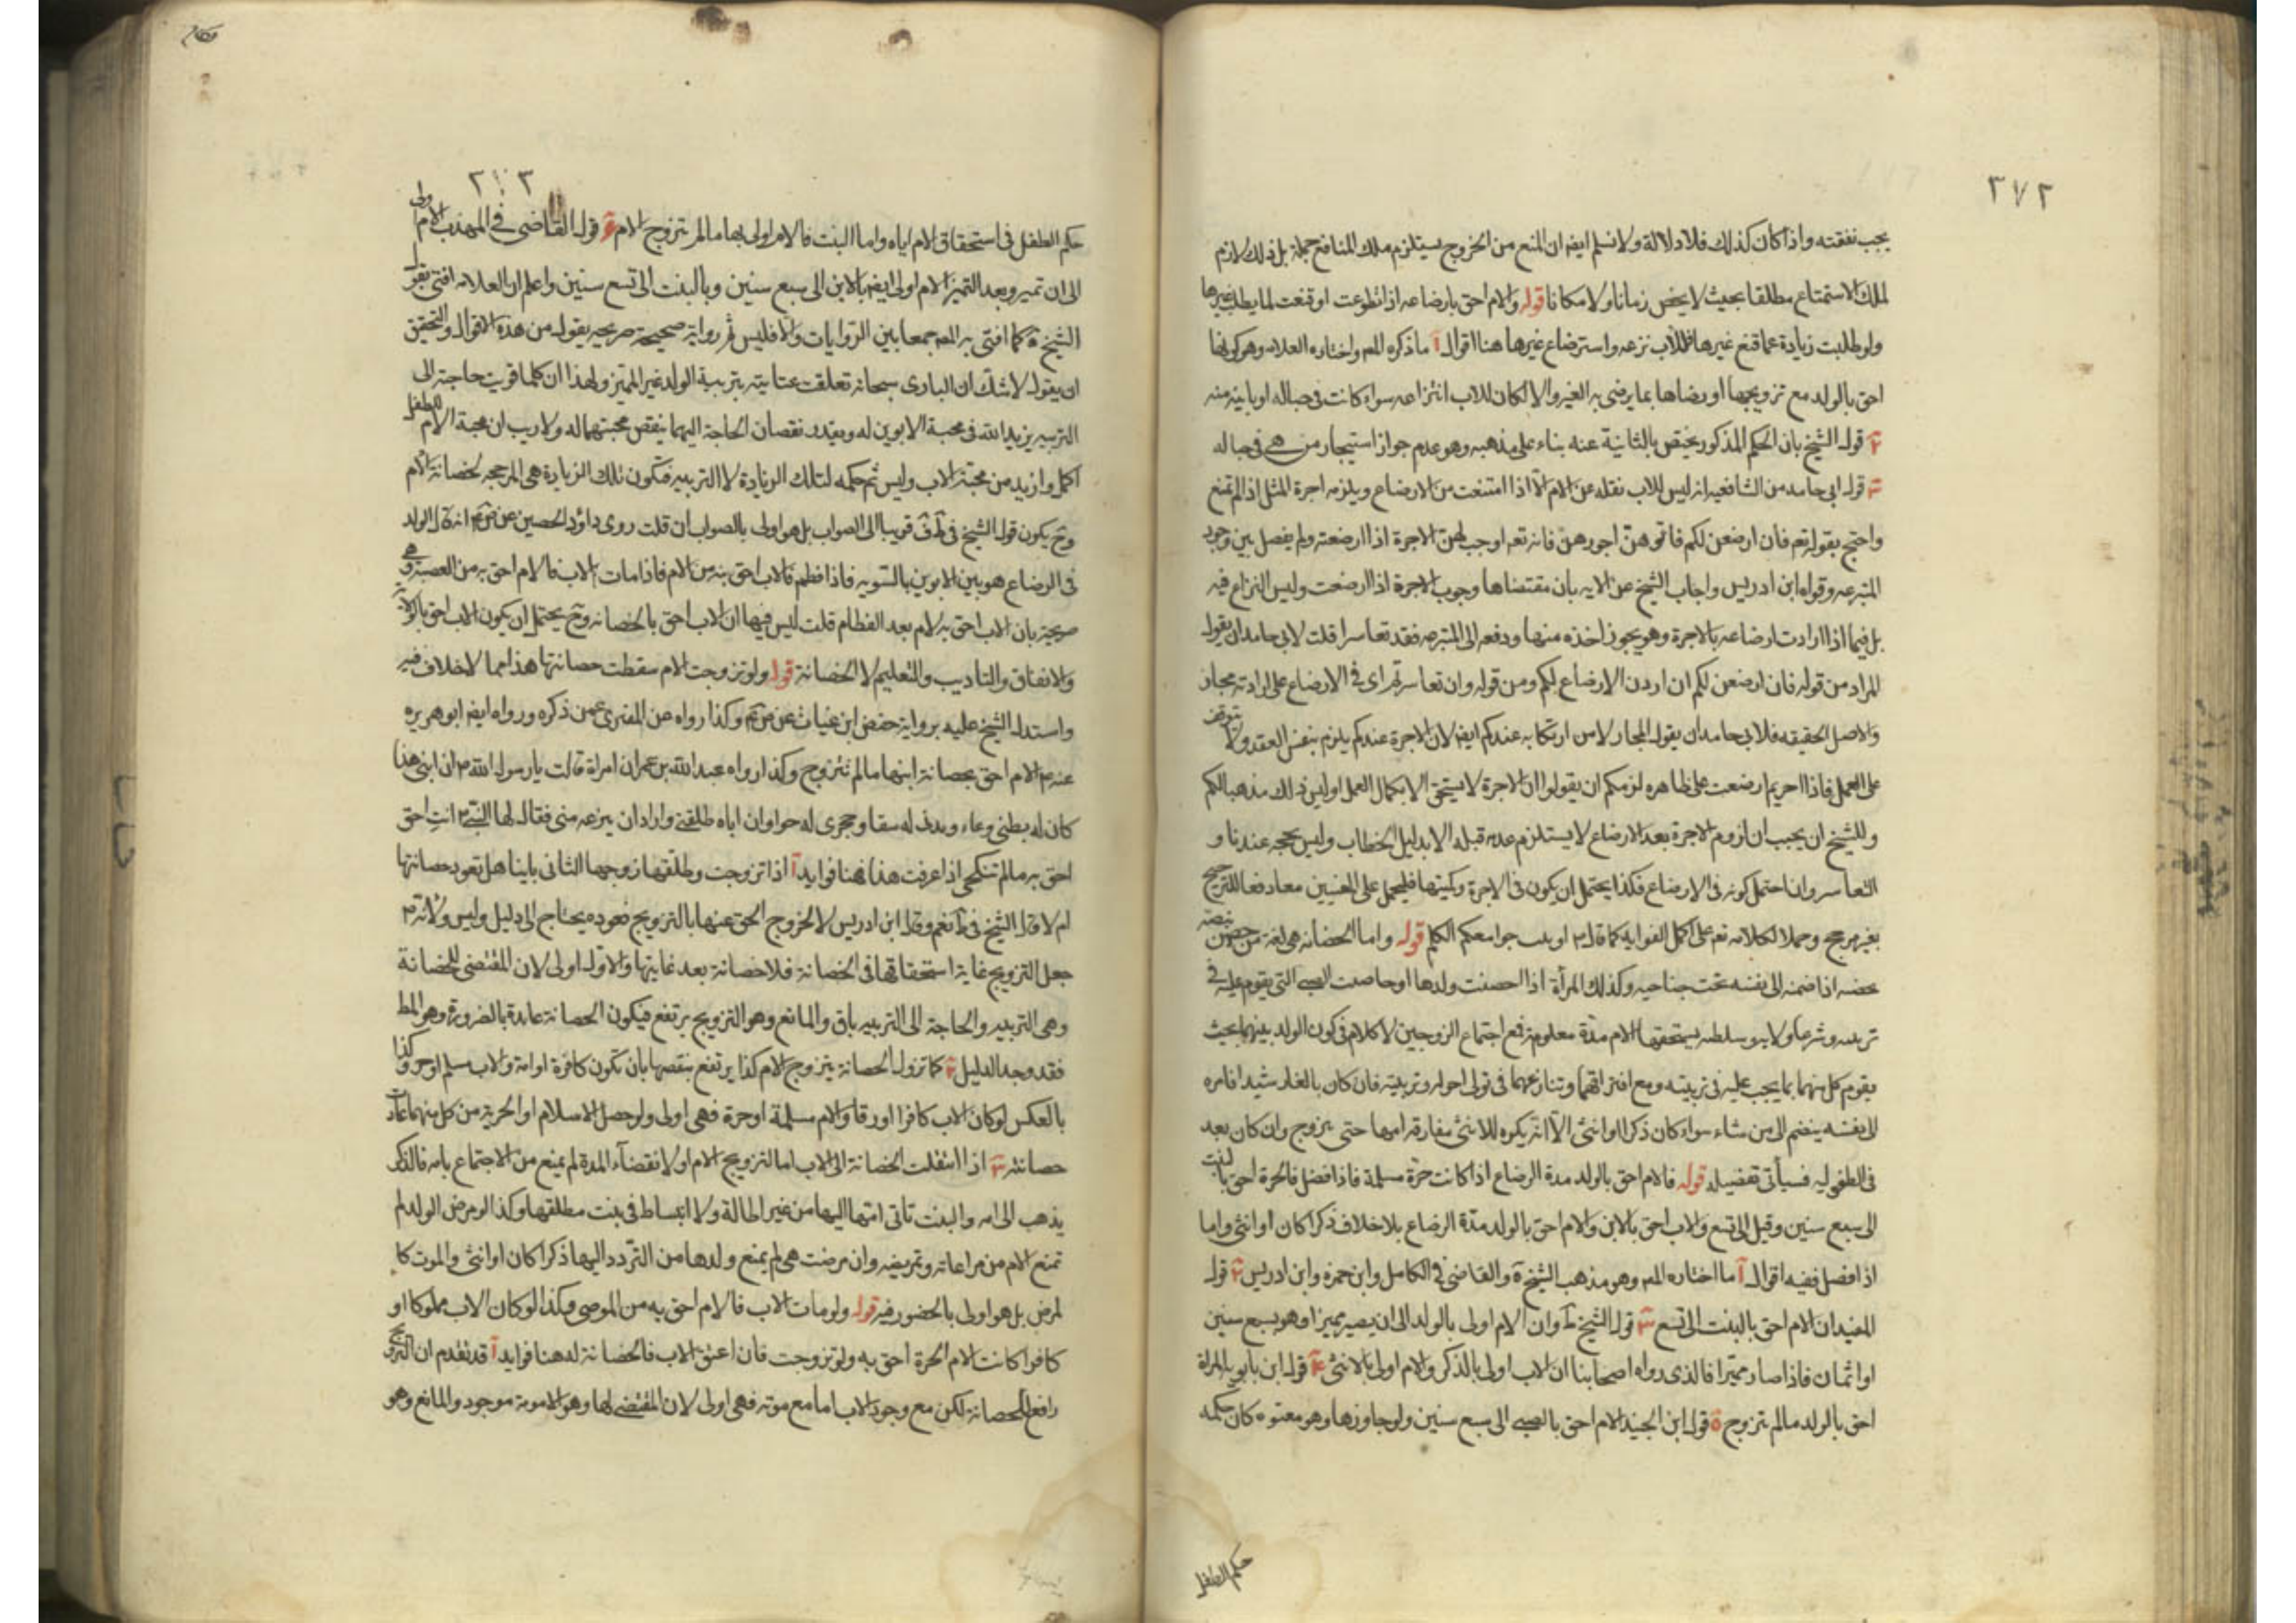 ٢٧٢
يجب نفقته واذا كان كذلك فلا دلالة ولا نسلم ايضا ان المنع من الخروج يستلزم ملك المنافع جملة بل ذلك لازم
لملك الاستمتاع مطلقا بحيث لا يخص زمانا ولا مكانا قوله والام احق بارضاعه اذا تطوعت او قنعت لما يطلب غيرها
ولو طلبت زيادة عما قنع غيرها فللاب نزعه واسترضاع غيرها هنا اقوال آ ما ذكره المص واختاره العلامه وهو كونها
احق بالولد مع تزويجها او رضاها بما يرضى به الغير والا لكان للاب انتزاعه سواء كانت في حباله او باينة منه
قول الشيخ بان الحكم المذكور يختص بالثانية عنه بناء على مذهبه وهو عدم جواز استيجار من هي في حباله
قول ابي حامد من الشافعيه انه ليس للاب نقله عن الام الا اذا امتنعت من الارضاع ويلزمه اجرة المثل اذا لم تمنع
واحتج بقوله تعم فان ارضعن لكم فاتوهن اجورهن فانه تعم اوجب لهن الاجرة اذا ارضعته ولم يفصل بين وجود
المتبرعه وقواه ابن ادريس واجاب الشيخ عن الايه بان مقتضاها وجوب الاجرة اذا ارضعت وليس النزاع فيه
بل فيما اذا ارادت ارضاعه بالاجرة وهو يجوز اخذه منها ودفعه الى المتبرعه فقد تعاسرا قلت لابي حامد ان يقول
المراد من قوله فان ارضعن لكم ان اردن الارضاع لكم ومن قوله وان تعاسرتم اى في الارضاع على ارادته مجاز
والاصل الحقيقه فلابي حامد ان يقول المجاز لا من ارتكابه عندكم ايضا لان الاجرة عندكم يلزم بنفس العقد ولا يتوقف
على العمل فاذا اجريتم ارضعت على ظاهره لزمكم ان يقولوا ان الاجرة لا يستحق الا بكمال العمل او ليس ذلك مذهبا لكم
وللشيخ ان يجيب ان لزوم الاجرة بعد الارضاع لا يستلزم عدمه قبله الا بدليل الخطاب وليس بحجه عندنا و
التعاسر وان احتمل كونه في الارضاع فكذا يحتمل ان يكون في الاجرة وكميتها فليحمل على المعنيين معا دفعا للترجيح
بغير مرجح وحملا لكلامه تعم على اكمل الفوايد كما قال اوتيت جوامع الكلم قوله واما الحضانه هي لغة من حضن بيضه
يحضنه اذا ضمه الى نفسه تحت جناحيه وكذلك المرأة اذا احضنت ولدها وحاضنت الصبي التي يقوم عليه في
تربيته وشرعا ولايه وسلطنه يستحقها الام مدة معلومة فمع اجتماع الزوجين لا كلام في كون الولد بينهما بحيث
يقوم كل منهما بما يجب عليه في تربيته ومع افتراقهما وتنازعهما في تولى احواله وتربيته فان كان بالغا رشيدا فامره
الى نفسه ينضم الى من شاء سواء كان ذكرا او انثى الا انه يكره للانثى مفارقة امها حتى يتزوج وان كان بعد
في الطفوليه فسيأتي تفصيله قوله فالام احق بالولد مدة الرضاع اذا كانت حرة مسلمة فاذا فصل فالحرة احق بالبنت
الى سبع سنين وقيل الى تسع والاب احق بالابن والام احق بالولد مدة الرضاع بلا خلاف ذكرا كان او انثى واما
اذا فصل ففيه اقوال آ ما اختاره المص وهو مذهب الشيخ ة والقاضى في الكامل وابن حمزه وابن ادريس قول
المفيد ان الام احق بالبنت الى تسع قول الشيخ ط وان الام اولى بالولد الى ان يصير مميزا وهو سبع سنين
او ثمان فاذا صار مميزا فالذي رواه اصحابنا ان الاب اولى بالذكر والام اولى بالانثى قول ابن بابويه المراة
احق بالولد ما لم يتزوج قول ابن الجنيد الام احق بالصبي الى سبع سنين ولو جاوزها وهو معتوه كان حكمه
حكم الطفل
٢٧٣
حكم الطفل في استحقاق الام اياه واما البنت فالام اولى بها ما لم تتزوج الام قول القاضى في المهذب الام اولى
الى ان تميز وبعد التميز الام اولى ايضا بالابن الى سبع سنين وبالبنت الى تسع سنين واعلم ان العلامه افتى بقول
الشيخ ة كما افتى به المص جمعا بين الروايات والا فليس ثم رواية صحيحة صريحه بقول من هذه الاقوال والتحقيق
ان يقول لا شك ان البارى سبحانه تعلقت عنايته بتربية الولد غير المميز ولهذا ان كلما قويت حاجته الى
التربيه يزيد الله في محبة الابوين له وبقدر نقصان الحاجة اليهما ينقص محبتهما له ولا ريب ان محبة الام للطفل
اكمل وازيد من محبة الاب وليس ثم حكمه لتلك الزيادة الا التربيه فتكون تلك الزيادة هي المرجحه لحضانة الام
وح يكون قول الشيخ في ط ق قريبا الى الصواب بل هو اولى بالصواب ان قلت روى داود الحصين عن ص م انه قال الولد
في الرضاع هو بين الابوين بالسويه فاذا فطم فالاب احق به من الام فاذا مات الاب فالام احق به من العصبة وهي
صريحة بان الاب احق به لام بعد الفطام قلت ليس فيها ان الاب احق بالحضانه وح يحتمل ان يكون الاب احق بالولاية
والانفاق والتاديب والتعليم لا الحضانة قوله ولو تزوجت الام سقطت حضانتها هذا مما لا خلاف فيه
واستدل الشيخ عليه برواية حفص ابن غياث عن ص م وكذا رواه عن المنقري عمن ذكره ورواه ايضا ابو هريره
عنه م الام احق بحضانة ابنها ما لم تتزوج وكذا رواه عبد الله بن عمران امراة قالت يا رسول الله م ان ابنى هذا
كان له بطنى وعاء وثديي له سقا وحجرى له حوا وان اباه طلقنى واراد ان ينزعه منى فقال لها النبي م انت احق
احق به ما لم تنكحى اذا عرفت هذا فهنا فوايد آ اذا تزوجت وطلقها زوجها الثانى باينا هل تعود حضانتها
ام لا قال الشيخ في ط نعم وقال ابن ادريس لا لخروج الحق عنها بالتزويج فعوده يحتاج الى دليل وليس ولانه م
جعل التزويج غاية استحقاقها في الحضانة فلا حضانة بعد غايتها والاول اولى لان المقتضى للحضانة
وهي التربيه والحاجة الى التربيه باق والمانع وهو التزويج يرتفع فيكون الحضانة عايدة بالضرورة وهو المط
فقد وجد الدليل كما تزول الحضانة بتزوج الام كذا يرتفع بنقصها بان تكون كافرة او امة والاب مسلم او حر وكذا
بالعكس لو كان الاب كافرا او رقا والام مسلمة او حرة فهي اولى ولو حصل الاسلام او الحرية من كل منهما عادت
حضانته اذا انتقلت الحضانة الى الاب اما لتزويج الام او لانقضاء المدة لم يمنع من الاجتماع بامه فالذكر
يذهب الى امه والبنت تاتى امها اليها من غير اطالة ولا انبساط في بنت مطلقها وكذا لو مرض الولد لم
تمنع الام من مراعاته وتمريضه وان مرضت هي لم يمنع ولدها من التردد اليها ذكرا كان او انثى والموت كا
لمرض بل هو اولى بالحضور فيه قوله ولو مات الاب فالام احق به من الوصى فكذا لو كان الاب مملوكا او
كافرا كانت الام الحرة احق به ولو تزوجت فان اعتق الاب فالحضانة له هنا فوايد آ قد تقدم ان التزويج
رافع للحضانة لكن مع وجود الاب اما مع موته فهي اولى لان المقتضى لها وهو الامومة موجود والمانع وهو